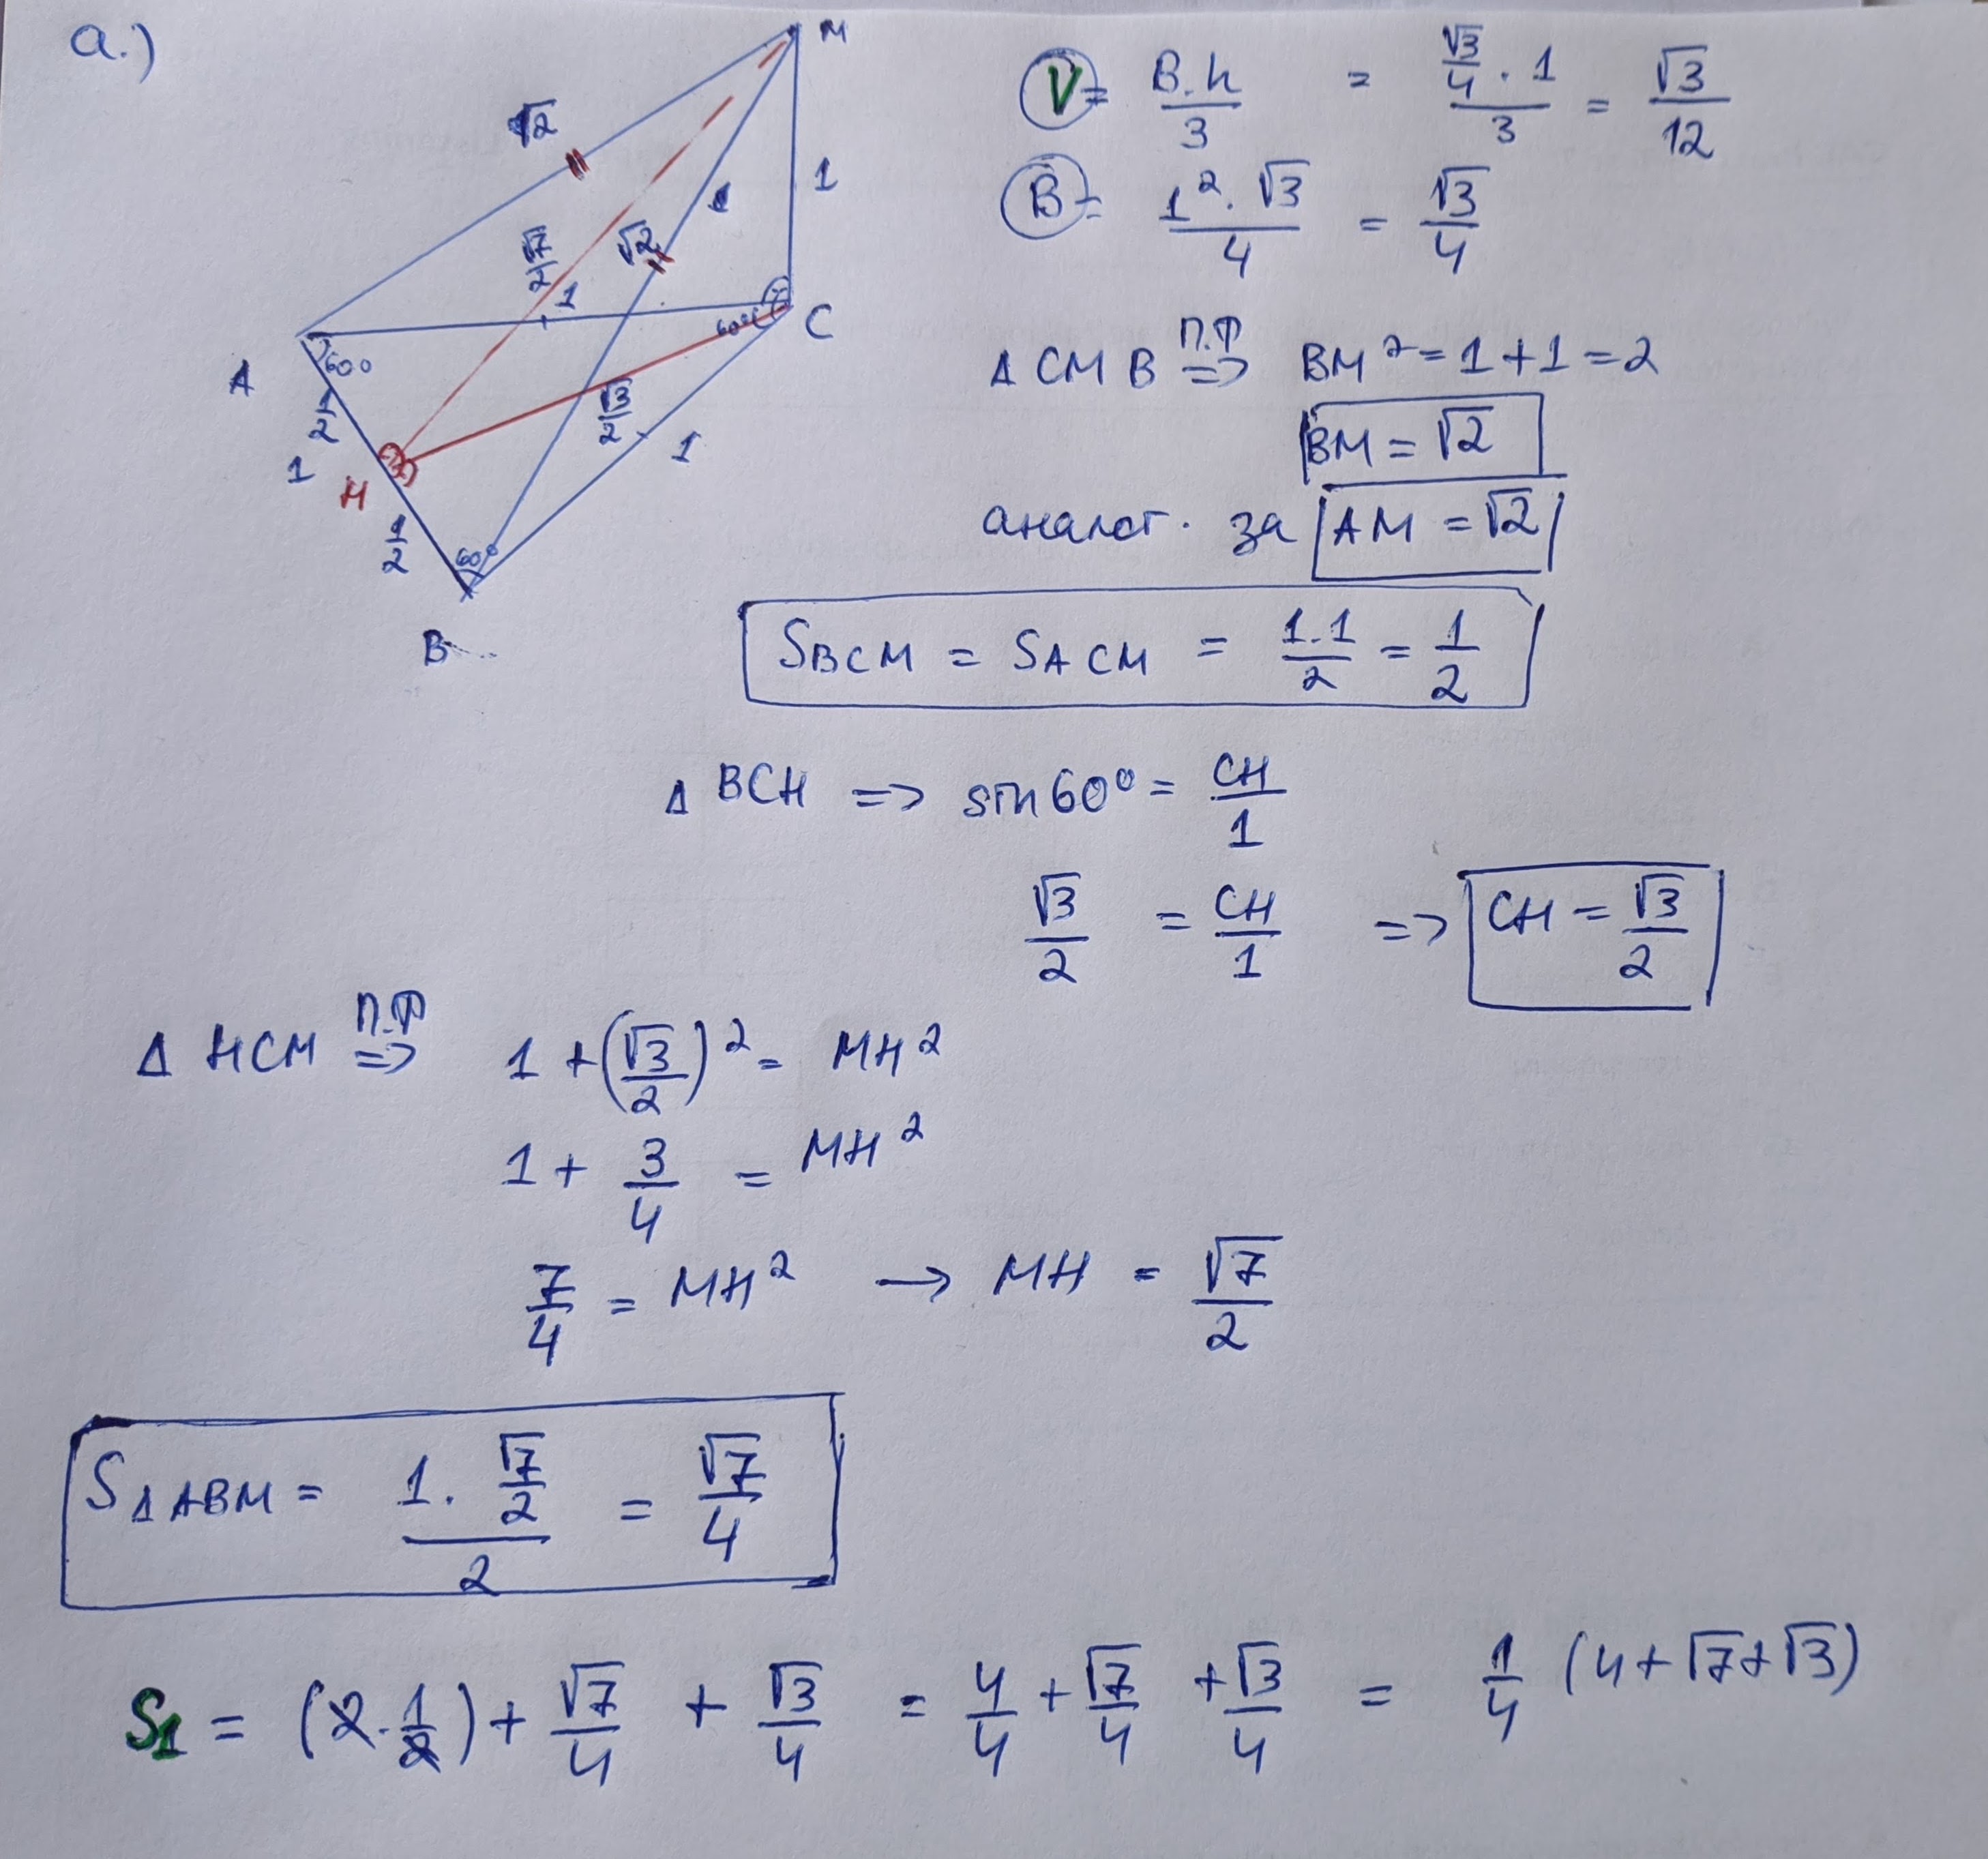 a.)
M
√2
1
√7/2
√2
1
1
60°
C
A
60°
1/2
√3/2
1
1
H
1/2
60°
B
V = B.h/3 = (√3/4 . 1)/3 = √3/12
B = 1² . √3/4 = √3/4
Δ CMB П.Т ⇒ BM² = 1 + 1 = 2
BM = √2
аналог. за AM = √2
S BCM = S ACM = 1.1/2 = 1/2
Δ BCH => sin 60° = CH/1
√3/2 = CH/1 => CH = √3/2
Δ HCM П.Т ⇒ 1 + (√3/2)² = MH²
1 + 3/4 = MH²
7/4 = MH² → MH = √7/2
S Δ ABM = (1 . √7/2)/2 = √7/4
S1 = (2 . 1/2) + √7/4 + √3/4 = 4/4 + √7/4 + √3/4 = 1/4 (4 + √7 + √3)